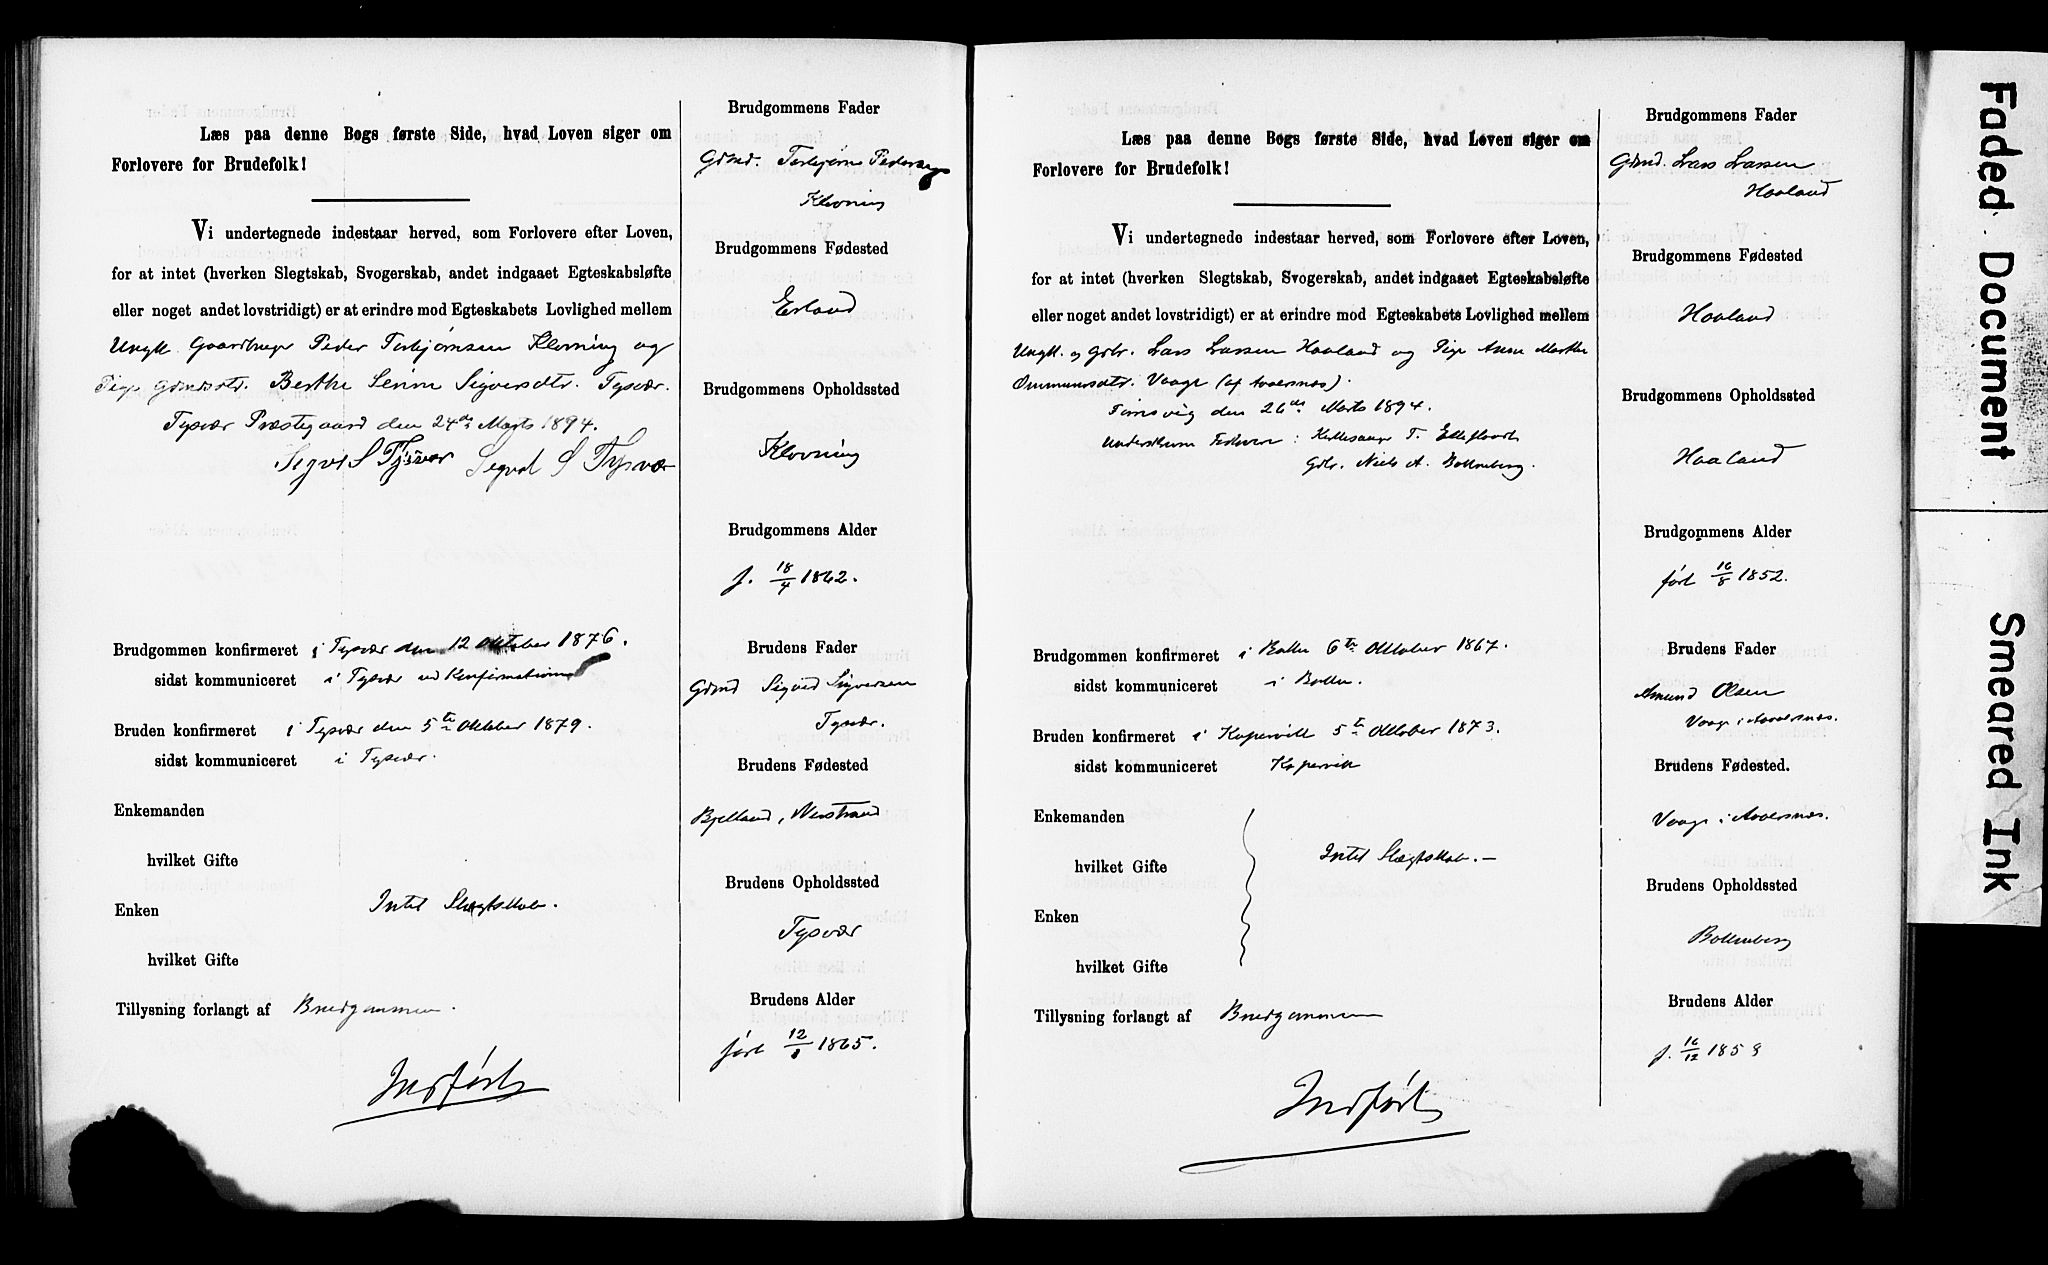 Læs paa denne Bogs første Side, hvad Loven siger om
Forlovere for Brudefolk!
Vi undertegnede indestaar herved, som Forlovere efter Loven,
for at intet (hverken Slegtskab, Svogerskab, andet indgaaet Egteskabsløfte
eller noget andet lovstridigt) er at erindre mod Egteskabets Lovlighed mellem
Ungk. Gaardbruger Peder Torbjørnsen Klovning og
Pige Gdmdsdtr. Berthe Serine Sigversdtr. Tysvær.
Tysvær Præstegaard den 24de Marts 1894.
Sigvd S Tysvær Segvd S Tysvær
Brudgommen konfirmeret i Tysvær den 12 Oktober 1876.
sidst kommuniceret i Tysvær ved Konfirmationen
Bruden konfirmeret i Tysvær den 5te Oktober 1879.
sidst kommuniceret i Tysvær.
Enkemanden
hvilket Gifte
Enken
Intet Slægtskab.
hvilket Gifte
Tillysning forlangt af Brudgommen.
Indført
Brudgommens Fader
Gdmd. Torbjørn Pedersen
Klovning
Brudgommens Fødested
Erland
Brudgommens Opholdssted
Klovning
Brudgommens Alder
f. 18/4 1862.
Brudens Fader
Gdmd Sigvd Sigversen
Tysvær.
Brudens Fødested
Bjelland, Nerstrand
Brudens Opholdssted
Tysvær
Brudens Alder
født 12/8 1865.
Læs paa denne Bogs første Side, hvad Loven siger om
Forlovere for Brudefolk!
Vi undertegnede indestaar herved, som Forlovere efter Loven,
for at intet (hverken Slegtskab, Svogerskab, andet indgaaet Egteskabsløfte
eller noget andet lovstridigt) er at erindre mod Egteskabets Lovlighed mellem
Ungk. og Gdbr. Lars Larsen Haaland og Pige Anne Marthe
Ommundsdtr. Vaage (af Avaersnæs).
den 26de Marts 1894.
Forlovere: Kirkesanger T.
Gdbr. Niels A. Bokneberg.
Brudgommen konfirmeret i Bokn 6te Oktober 1867.
sidst kommuniceret i Bokn.
Bruden konfirmeret i Kopervik 5te Oktober 1873.
sidst kommuniceret Kopervik
Enkemanden
Intet Slægtskab.—
hvilket Gifte
Enken
hvilket Gifte
Tillysning forlangt af Brudgommen
Indført
Brudgommens Fader
Gdmd. Lars Larsen
Haaland
Brudgommens Fødested
Haaland
Brudgommens Opholdssted
Haaland
Brudgommens Alder
født 16/8 1852.
Brudens Fader
Amund Olsen
Vaage i Avaersnæs.
Brudens Fødested.
Vaage i Avaersnæs.
Brudens Opholdssted
Bokneberg
Brudens Alder
f. 16/12 1859
Faded Document
Smeared Ink